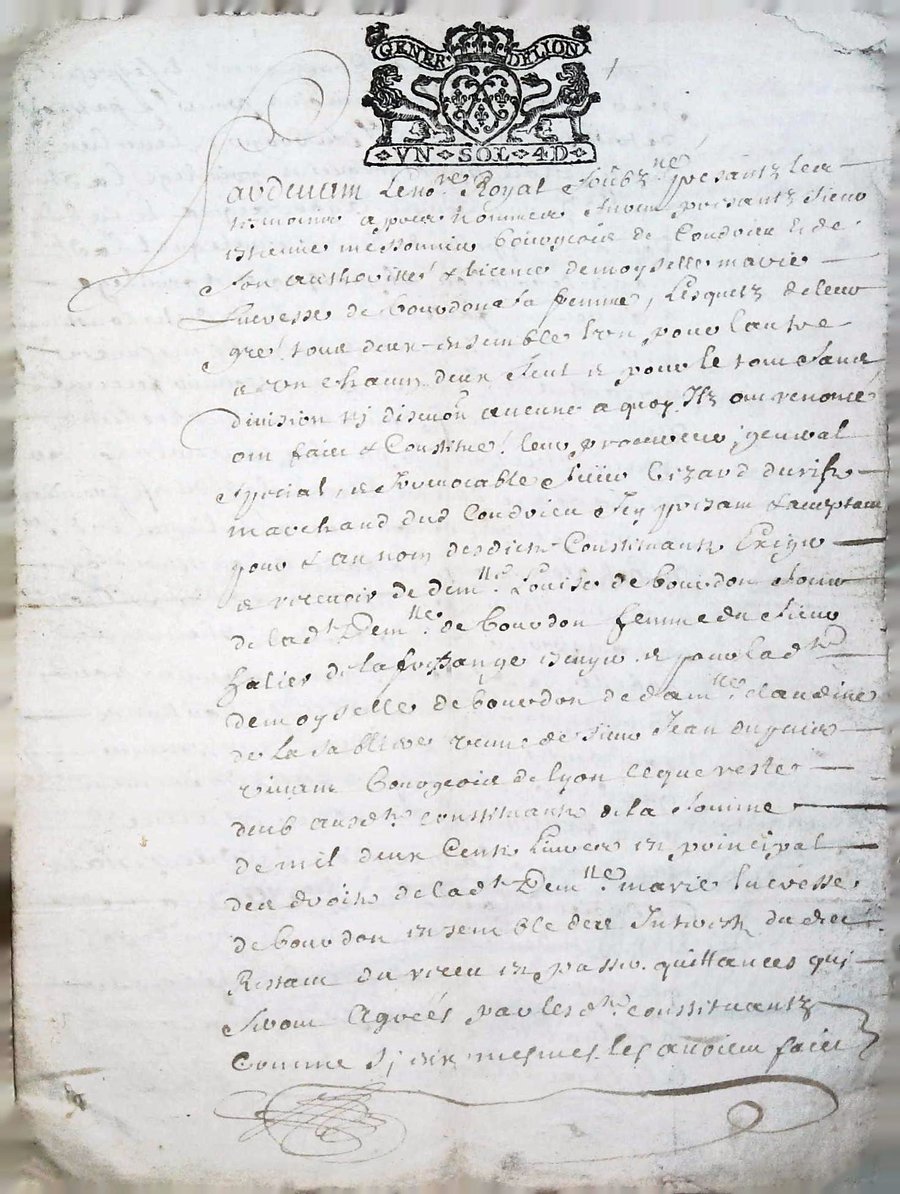 GENER. DELION
VN SOL 4D
Pardevant Le no.re Royal Soubz.ne presantz les
tesmoins apres nommes Furent presantz Sieur
Estienne messonnier bourgeois de Condrieu & de
son authorite & licence demoyselle marie
Lucresse de bourdon sa femme, Lesquelz de leur
gre tous deux ensemble lun pour lautre
& un chacun deux seul & pour le tout sans
division ny discution aucune a quoy Ilz ont renonce
ont faict & Constitue leur procureur general
special, & Irrevocable Sieur
marchand dud Condrieu Icy presant & acceptant
pour & au nom desdicts Constituants Exiger
& recevoir de dem.lle Louise de bourdon soeur
de lad.te Dem.lle de bourdon femme du Sieur
& pour lad.te
demoyselle de bourdon de dam.lle claudine
de La sabliere veuve de Sieur Jean
vivant bourgeois de Lyon ce que reste
deub ausd.ts constituants de la somme
de mil deux Cents Livres en principal
des droits de lad.te Dem.lle marie lucresse
de bourdon ensemble des Interestz dudict
Restant du receu en passer quittances qui
seront Agréés par lesd.ts constituantz
Comme sy eux mesmes les avoient faict